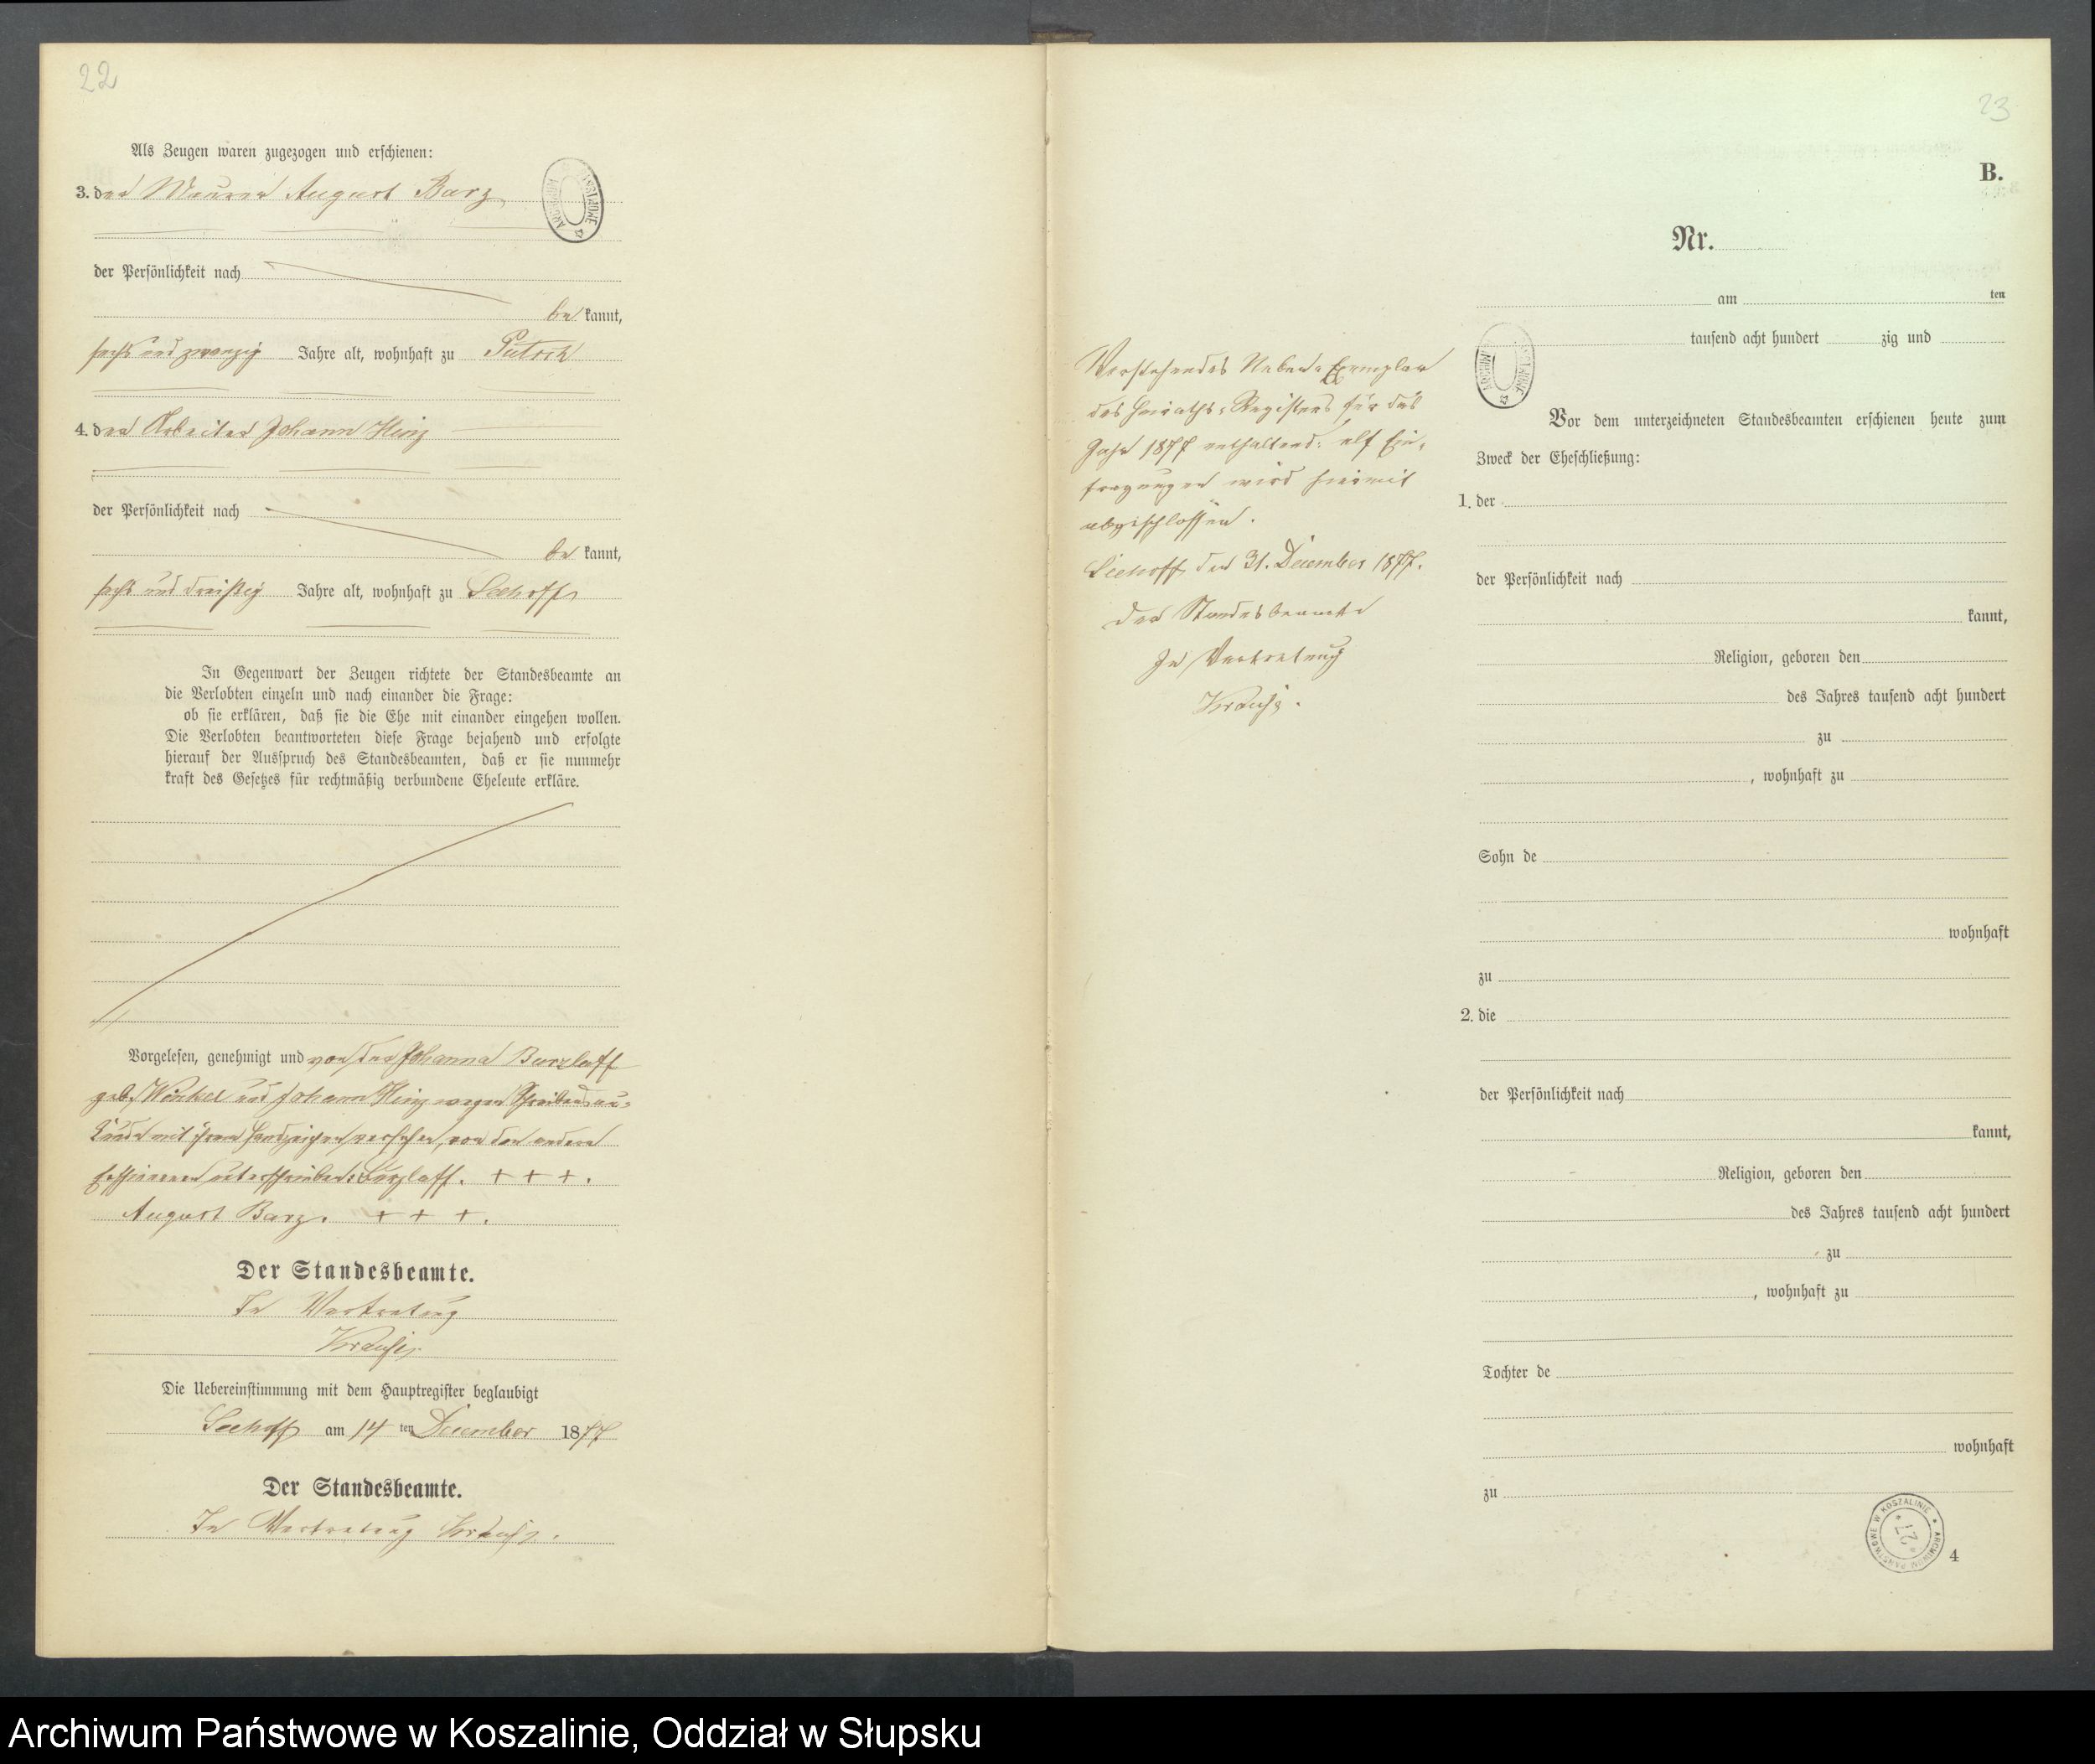 22
Als Zeugen waren zugezogen und erschienen:
3. der Maurer August Barz
der Persönlichkeit nach
be kannt,
sechs und zwanzig Jahre alt, wohnhaft zu
4. der Arbeiter Johann Hinz
der Persönlichkeit nach
be kannt,
sechs und dreißig Jahre alt, wohnhaft zu Seehoff
In Gegenwart der Zeugen richtete der Standesbeamte an
die Verlobten einzeln und nach einander die Frage:
ob sie erklären, daß sie die Ehe mit einander eingehen wollen.
Die Verlobten beantworteten diese Frage bejahend und erfolgte
hierauf der Ausspruch des Standesbeamten, daß er sie nunmehr
kraft des Gesetzes für rechtmäßig verbundene Eheleute erkläre.
Vorgelesen, genehmigt und von der Johanna Burzlaff
geb. Winkel und Johann Hinz wegen Schreibens un-
kunde mit ihren Handzeichen versehen, von den andern
unterschrieben: Burzlaff. + + +.
August Barz. + + +.
Der Standesbeamte.
In Vertretung
Krause
Die Uebereinstimmung mit dem Hauptregister beglaubigt
Seehoff am 14 ten December 1877
Der Standesbeamte.
In Vertretung Krause.
23
B.
Vorstehendes Neben-Exemplar
des Heiraths-Registers für das
Jahr 1877 enthaltend: elf Ein-
tragungen wird hiermit
abgeschlossen.
Seehoff, den 31. December 1877.
Der Standesbeamte
In Vertretung
Krause.
Nr.
am ten
tausend acht hundert zig und
Vor dem unterzeichneten Standesbeamten erschienen heute zum
Zweck der Eheschließung:
1. der
der Persönlichkeit nach
kannt,
Religion, geboren den
des Jahres tausend acht hundert
zu
, wohnhaft zu
Sohn de
wohnhaft
zu
2. die
der Persönlichkeit nach
kannt,
Religion, geboren den
des Jahres tausend acht hundert
zu
, wohnhaft zu
Tochter de
wohnhaft
zu
ARCHIWUM PAŃSTWOWE W KOSZALINIE
27
4
Archiwum Państwowe w Koszalinie, Oddział w Słupsku